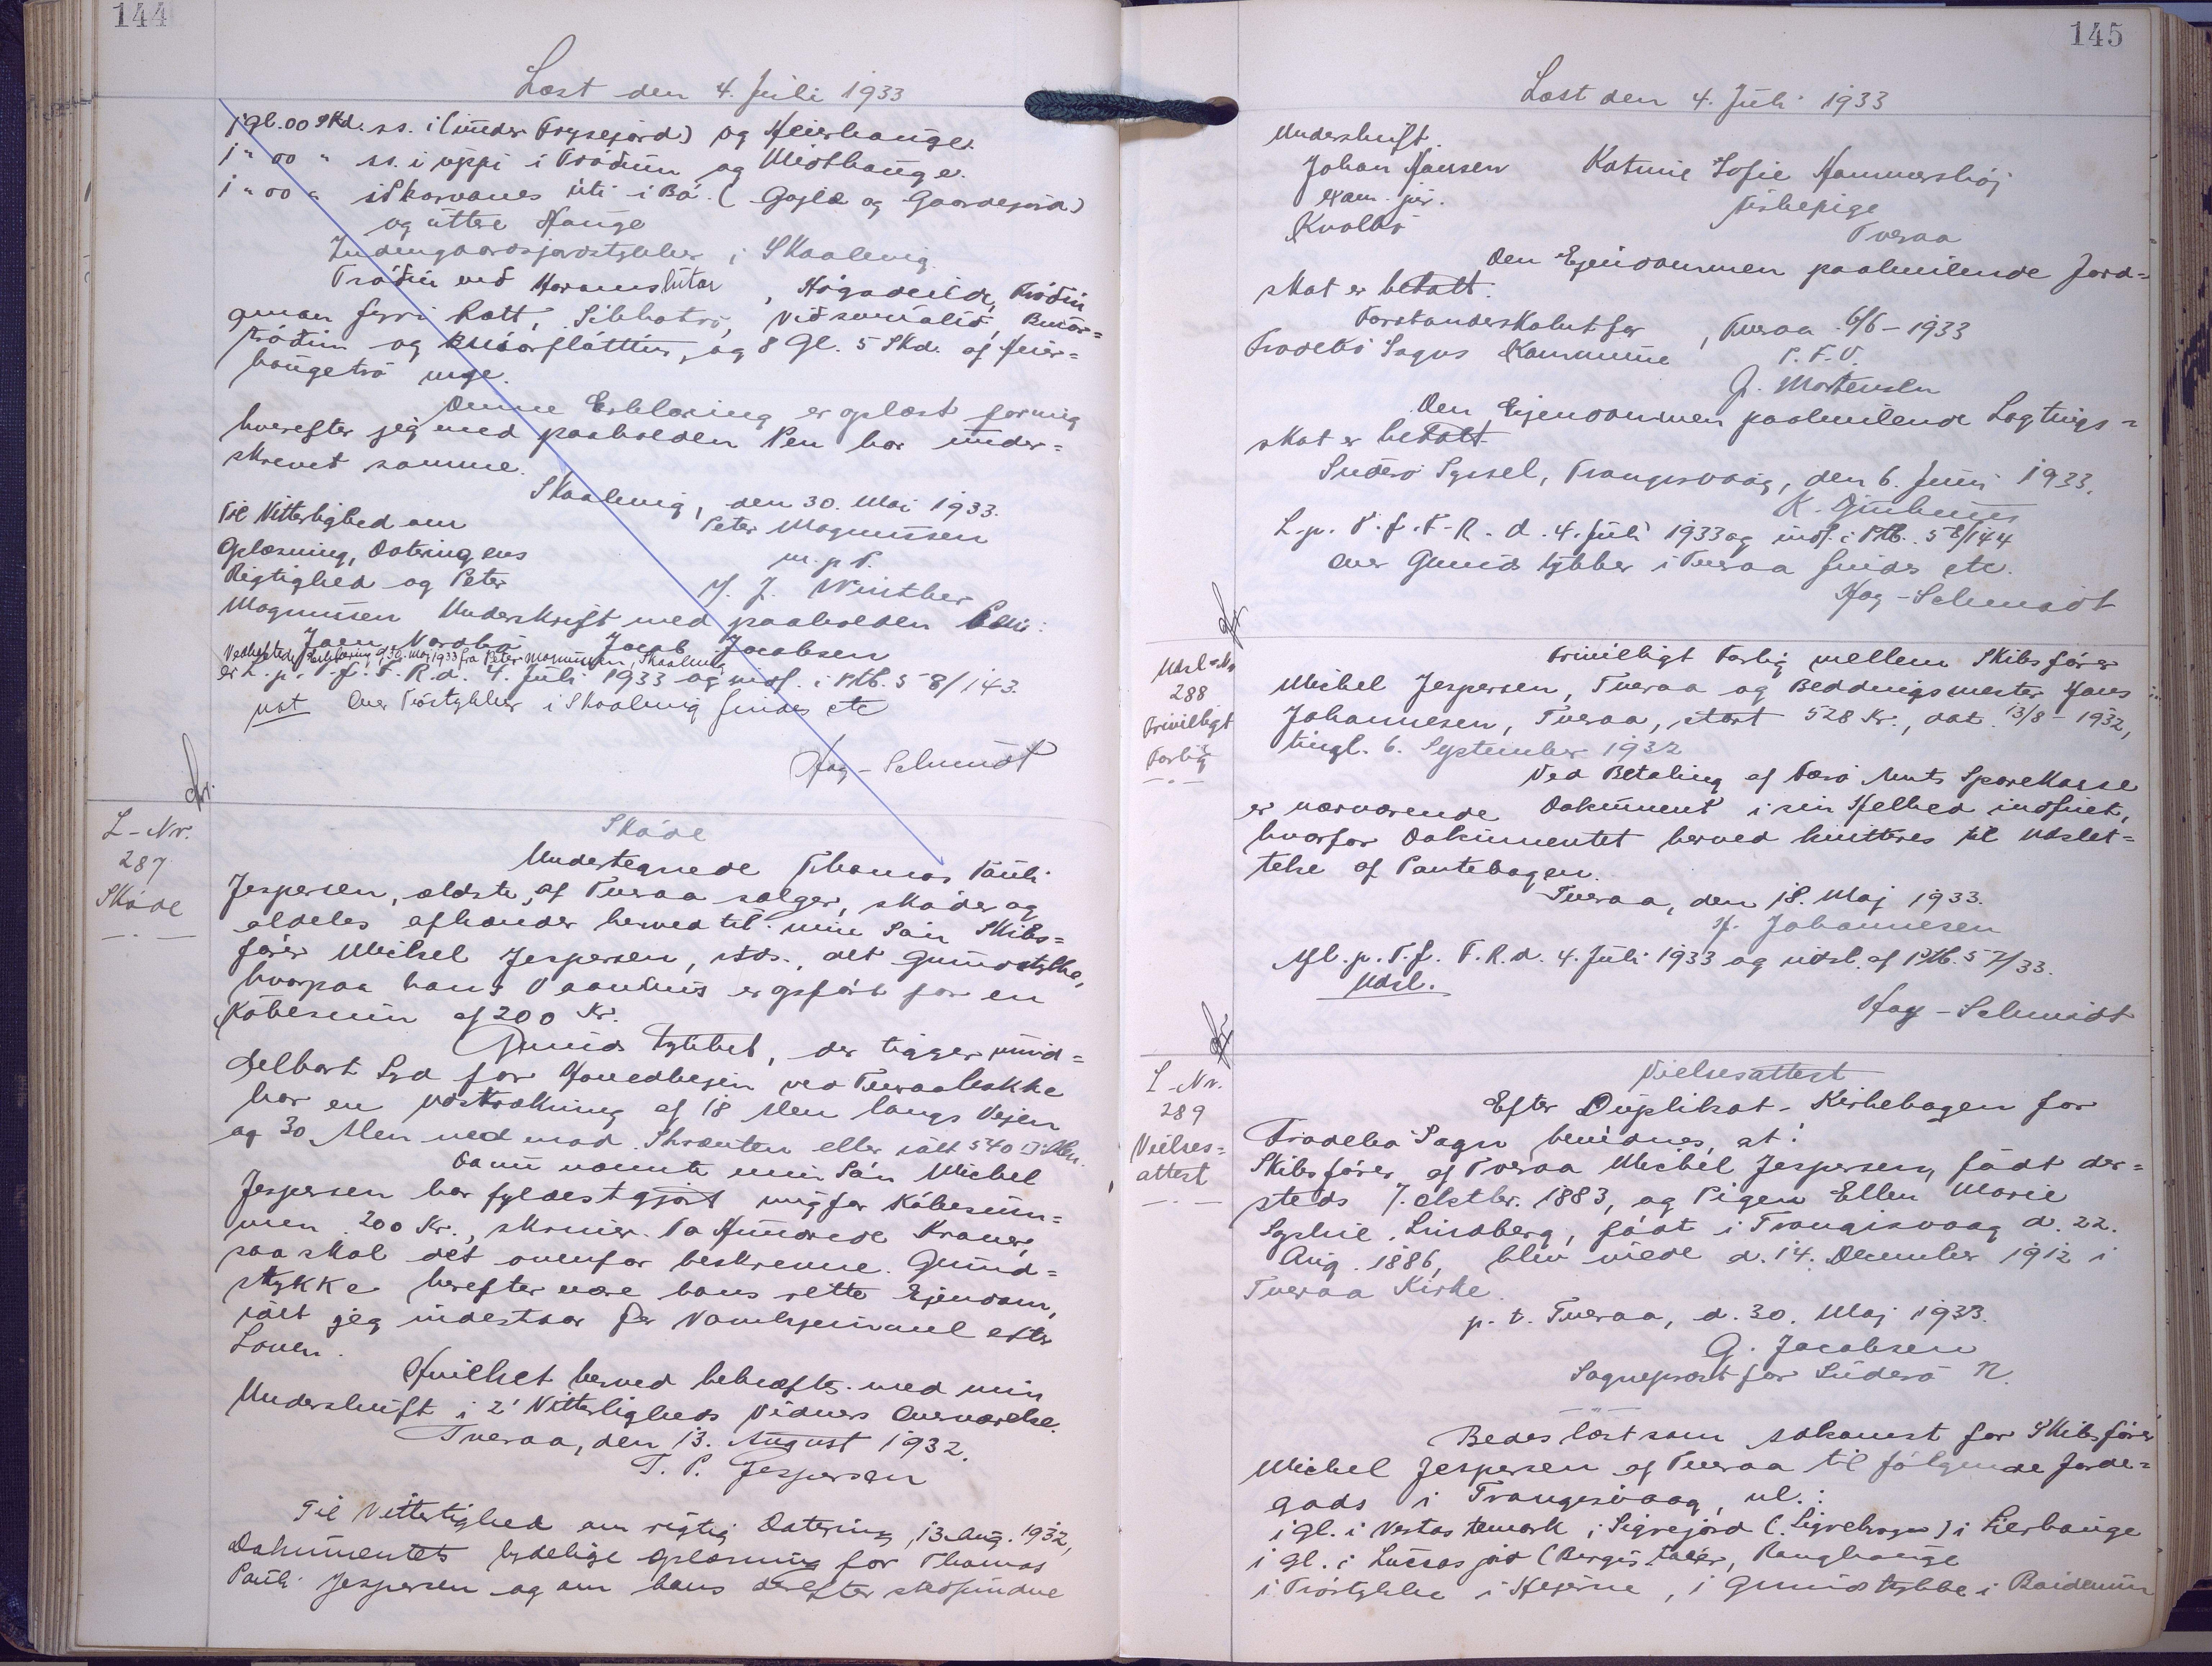 144
Læst den 4. Juli 1933
1 gl. 00 Skd. ss. i (under Frysejord) og Heierhauge.
1 " 00 " ss. i uppi i Tródum og Midthauge.
1 " 00 " i Skarvanes úti i Bø. ( og Gaardejord)
og uttre Hauge
Indengaardsjordstykker i Skaalevig.
Tródin ved , Høgadeild, Tródin
fyri Rætt, , ,
tródin og , og 8 Gl. 5 Skd. af Heier=
haugetrø
Denne Erklæring er oplæst for mig
hvorefter jeg med paaholden Pen har under=
skrevet samme.
Skaalevig, den 30. Mai 1933.
Til Vitterlighed om
Peter Magnussen
Oplæsning, Dateringens
m. p. P.
Rigtighed og Peter
J. Winther
Magnussen Underskrift med paaholden Pen:
Joen Nordberg Jacob Jacobsen
Vedheftede Erklæring af 30. Maj 1933 fra Peter Magnussen, Skaalevig
er L. p. T. f. F. R. d. 4. Juli 1933 og indf. i Ptb. 58/143.
not Over Tróstykker i Skaalevig findes etc
Høg-Schmidt
L-Nr.
287
Skøde
Skøde
Undertegnede Thomas Pauli
Jespersen, ældste, af Tveraa sælger, skøder og
aldeles afhænder herved til min Søn Skibs=
fører Michel Jespersen, stds., det Grundstykke,
hvorpaa hans Vaanhus er opført for en
Købesum af 200 Kr.
Grundstykket, der ligger umid=
delbart Syd for Hovedvejen ved Tveraabakke
har en Udstrækning af 18 Alen langs Vejen
og 30 Alen ned mod Skrænten eller ialt 540 □ Alen.
Da nu nævnte min Søn Michel
Jespersen har fyldestgjort mig for Købesum=
men 200 Kr., skriver To Hundrede Kroner,
saa skal det ovenfor beskrevne Grund=
stykke herefter være hans rette Ejendom,
idet jeg indestaar for Vanhjemmel efter
Loven.
Hvilket herved bekræftes med min
Underskrift i 2 Vitterligheds Vidners Overværelse.
Tveraa, den 13. August 1932.
T. P. Jespersen
Til Vitterlighed om rigtig Datering, 13 Aug. 1932,
Dokumentets tydelige Oplæsning for Thomas
Pauli Jespersen og om hans derefter stedfundne
145
Læst den 4. Juli 1933
Underskrift.
Johan Hansen Katrine Sofie Hammershøj
exam. jur. Fiskepige
Kvalbø Tveraa
Den Ejendommen paahvilende Jord=
skat er betalt.
Forstanderskabet for , Tveraa 6/6 - 1933
Frodebø Sogns Kommune P. F. V.
J. Mortensen
Den Ejendommen paahvilende Lagtings=
skat er betalt.
Suderø Syssel, Trangisvaag, den 6. Juni 1933.
L. p. T. f. F. R. d. 4. Juli 1933 og indf. i Ptb. 58/144
Over Grundstykker i Tveraa findes etc.
Høg-Schmidt
Udsl-Nr
288
Frivilligt
Forlig
Frivilligt Forlig mellem Skibsfører
Michel Jespersen, Tveraa og Beddingsmester Hans
Johannesen, Tveraa, stort 528 Kr., dat. 13/8 - 1932,
tingl. 6. September 1932
Ved Betaling af Færø Amts Sparekasse
er nærværende Dokument i sin Helhed indfriet,
hvorfor Dokumentet herved kvitteres til Udslet=
telse af Pantebogen.
Tveraa, den 18. Maj 1933.
H. Johannesen
Afl. p. T. f. F. R. d. 4. Juli 1933 og udsl. af Ptb. 57/33.
Udsl.
Høg-Schmidt
L-Nr.
289
Vielses=
attest
Vielsesattest
Efter Duplikat-Kirkebogen for
Frodebø Sogn bevidnes, at:
Skibsfører af Tveraa Michel Jespersen, født der=
steds 7. Oktbr. 1883, og Pigen Ellen Marie
Sophie Lindberg, født i Trangisvaag d. 22.
Aug. 1886, blev viede d. 14. December 1912 i
Tveraa Kirke.
p. t. Tveraa, d. 30. Maj 1933.
G. Jacobsen
Sognepræst for Suderø N.
Bedes læst som Adkomst for Skibsfører
Michel Jespersen af Tveraa til følgende Jorde=
gods i Trangisvaag, nl.:
1 gl. i Vestastemark i Sigvejord () i Lierhauge
1 gl. i jord (, Ranghauge
1 Tróstykke i Hejerne, 1 Grundstykke i